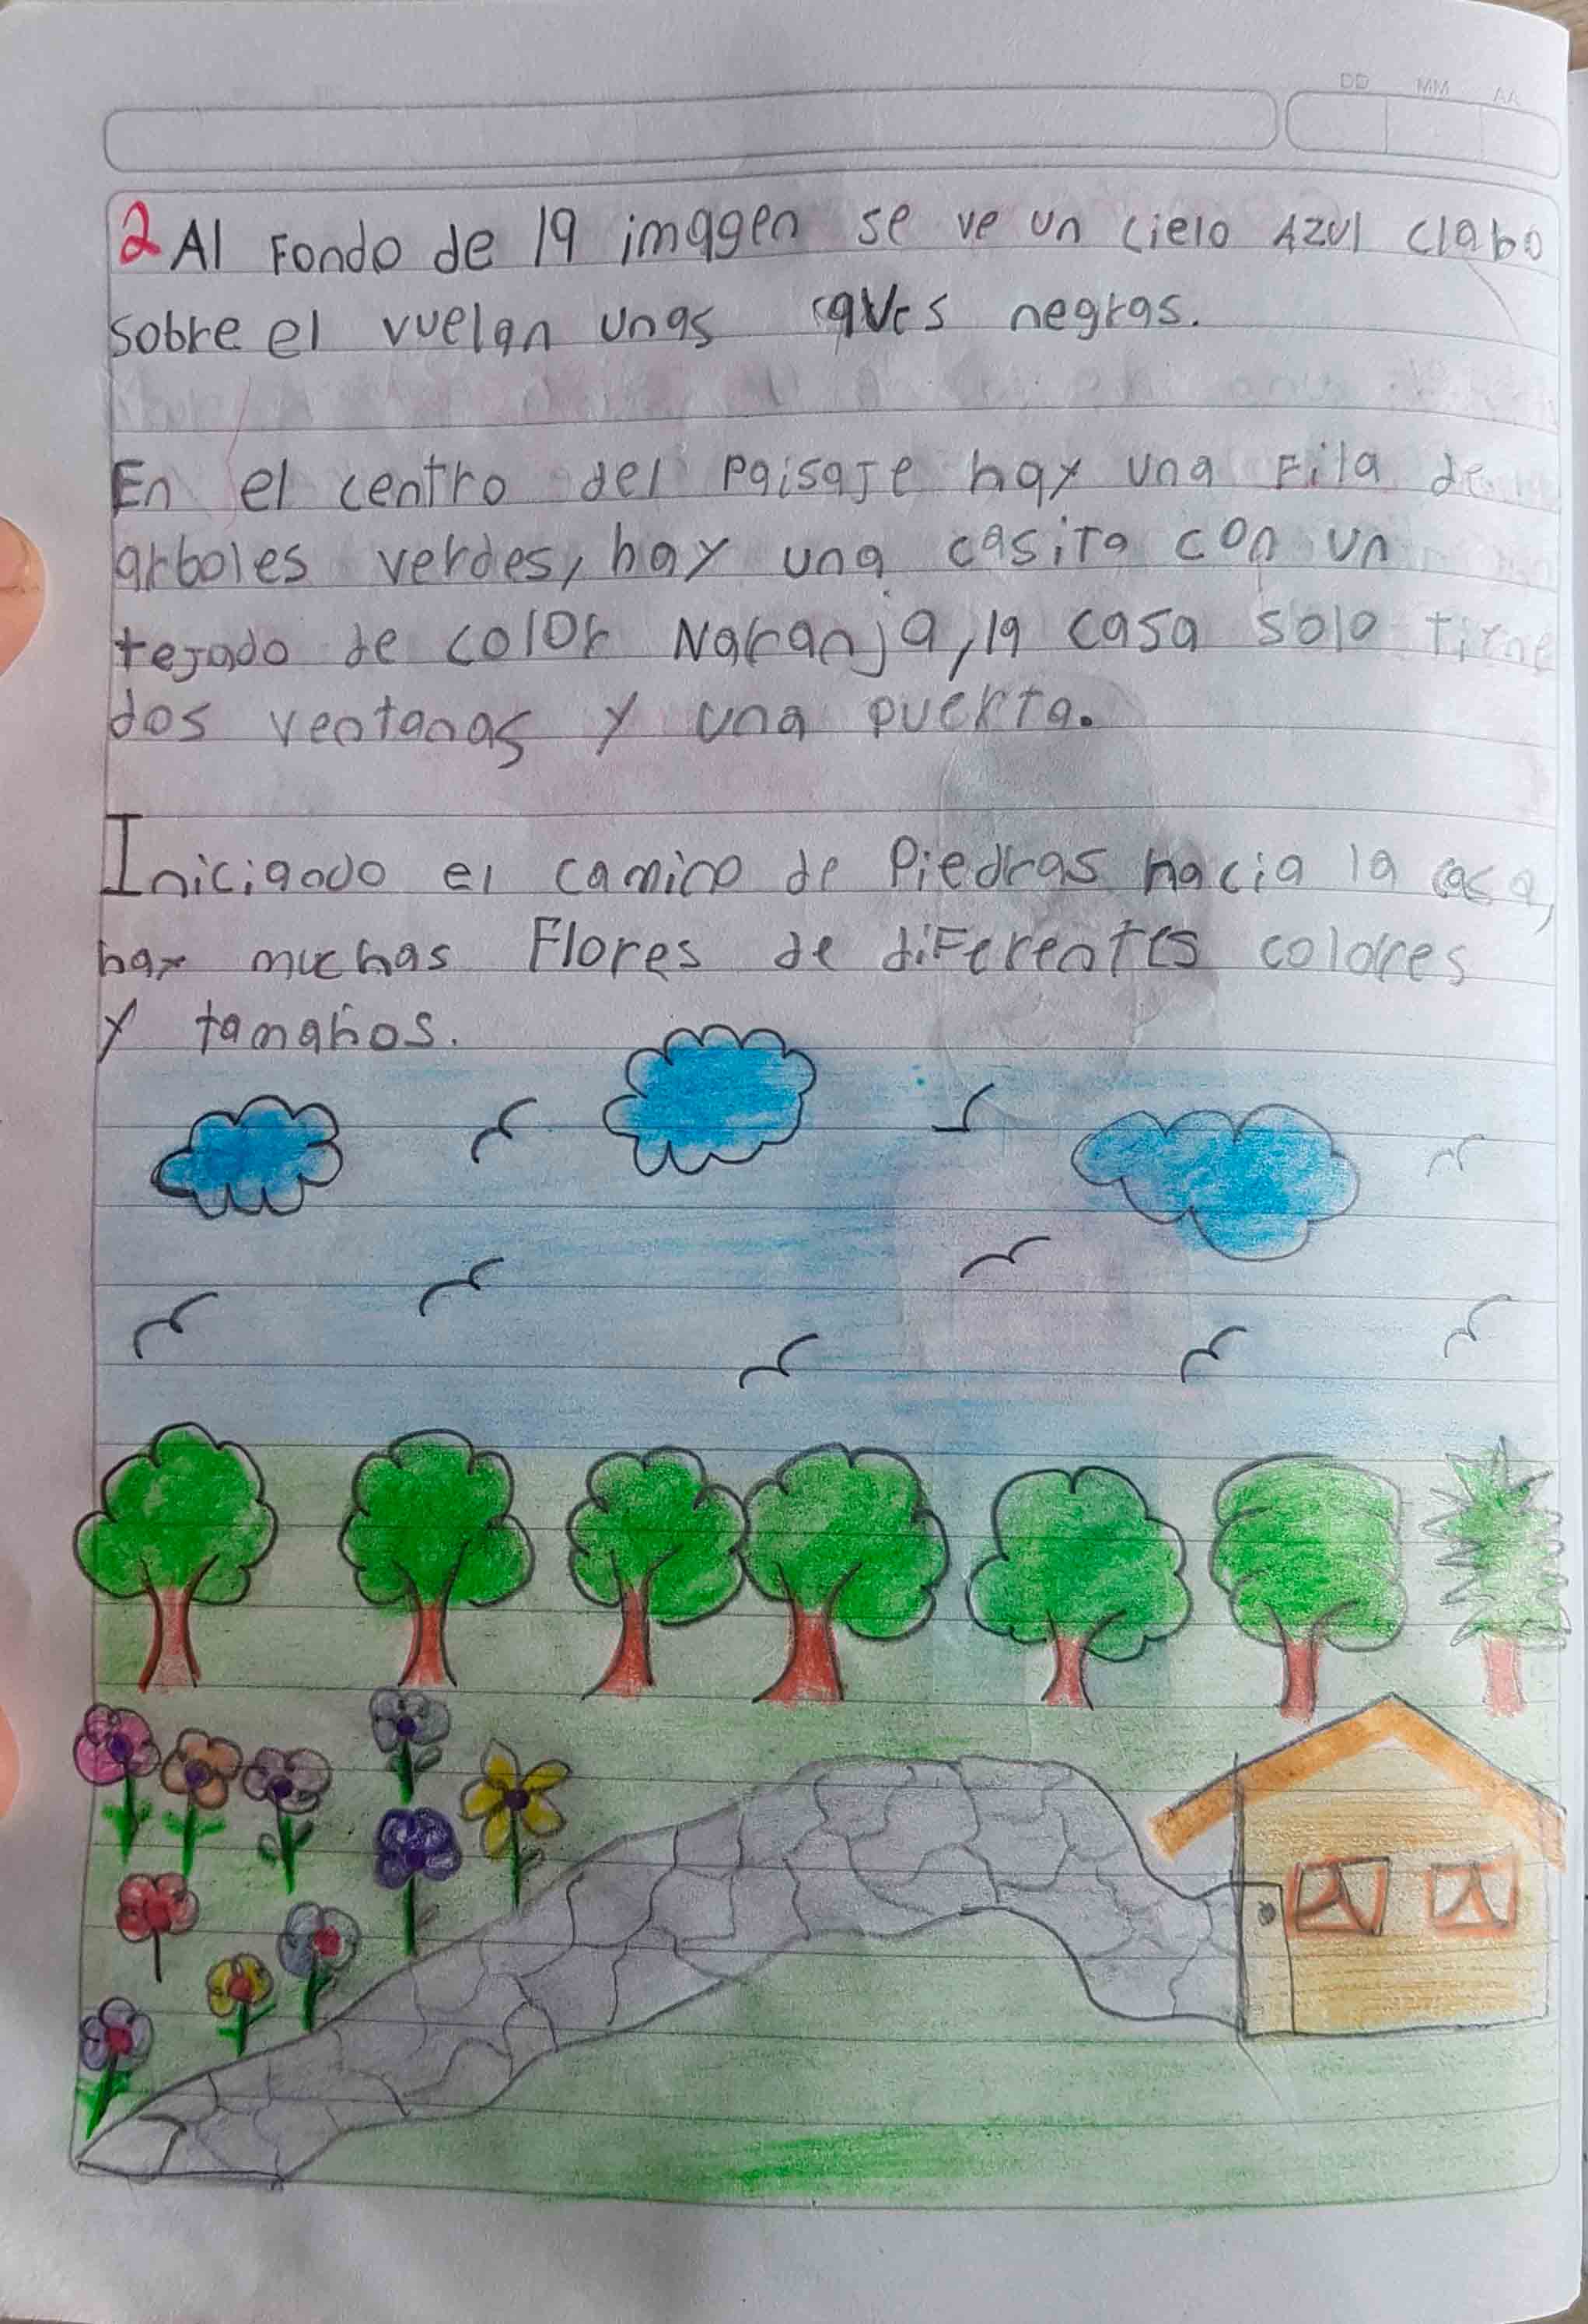 DD MM AA
2 Al Fondo de la imagen se ve un cielo Azul claro
sobre el vuelan unas aves negras.
En el centro del Paisaje hay una Fila de
arboles verdes, hay una casita con un
tejado de color Naranja, la casa solo tiene
dos ventanas y una puerta.
Iniciando el camino de Piedras hacia la casa,
hay muchas Flores de diFerentes colores
y tamaños.